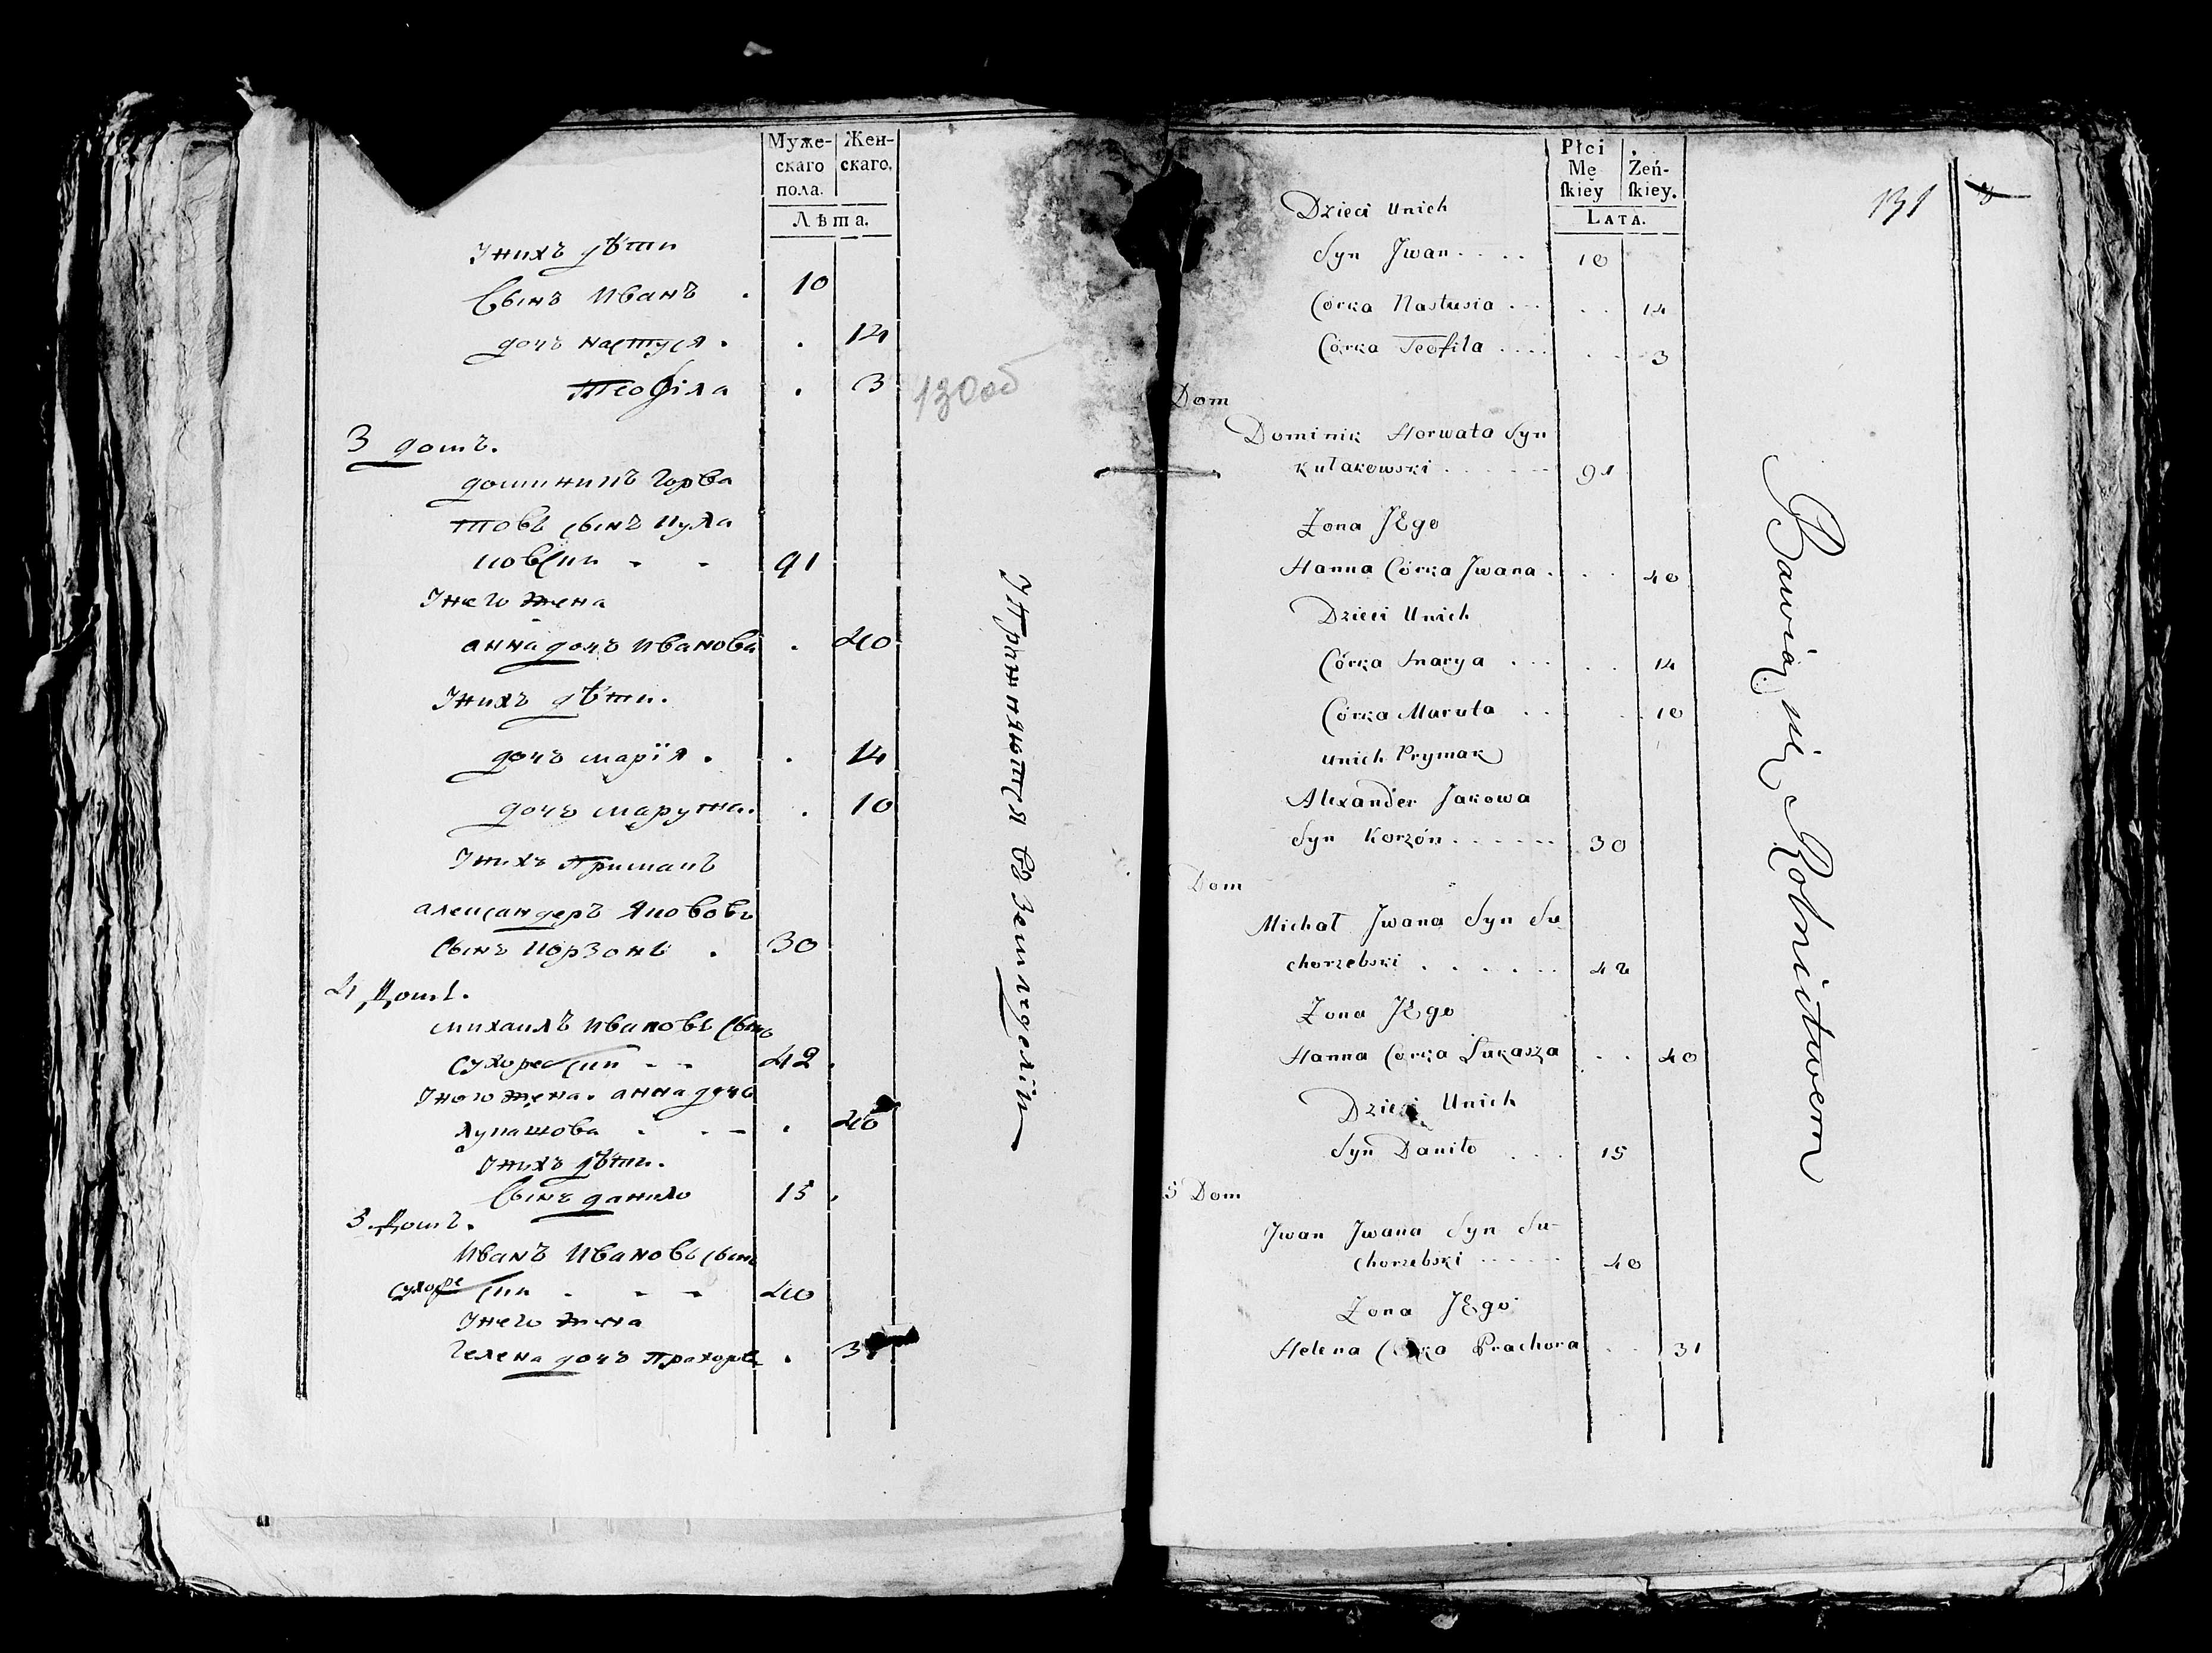 Муже-
скаго
пола.
Жен-
скаго.
Лѣта.
Унихъ дѣти
Сынъ Иванъ . 10
дочъ настуся . . 14
Теофіла . 3
130об
3 домъ.
доминикъ Горва
товъ сынъ кула
ковски - - 91
Унего жена
анна дочъ Иванова . 40
Унихъ дѣти.
дочъ марія . . 14
дочъ марута . . 10
Унихъ Примакъ
александеръ Яковов
Сынъ Корзонъ . 30
4 Домъ.
михаилъ Ивановъ Сынъ
Сухоре ски - - 42
Уного жена. анна дочъ
лукашова . . - . 40
Унихъ дѣти.
Сынъ данило 15
5. Домъ.
Иванъ Ивановъ сынъ
Сухоре ски - - - 40
Унего жена
Гелена дочъ Прахора . 3
Упражняются въ Земледеліи
Płci
Mę
ſkiey
Żeń-
ſkiey.
LATA.
131
Dzieci Unich
Syn Jwan . . . . 10
Córka Nastusia . . . . . 14
Córka Teofila . . . . . . . 3
Dom
Dominik Horwata Syn
Kułakowski . . . . . . 91
Żona JEgo
Hanna Córka Jwana . . . 40
Dzieci Unich
Córka Marya . . . . . 14
Córka Maruta . . . 10
unich Prymak
Alexander Jakowa
Syn Korzón . . . . . . 30
Dom
Michał Jwana Syn Su
chorzebski . . . . . . 42
Żona JEgo
Hanna Corka Łukasza . . 40
Dzieci Unich
Syn Daniło . . . 15
5 Dom
Jwan Jwana Syn Su-
chorzebski . . . . . . 40
Żona JEgo
Helena Córka Prachora . . 31
Bawią się Rolnictwem